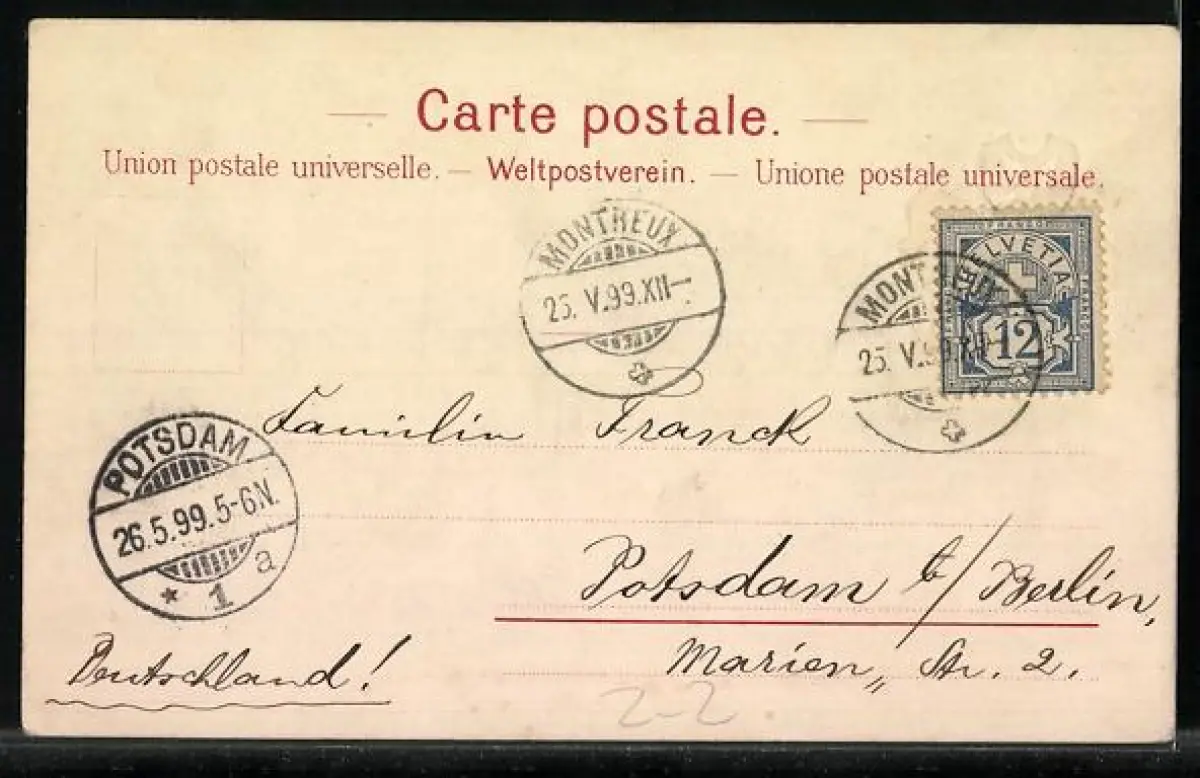 Carte postale.
Union postale universelle. — Weltpostverein. — Unione postale universale.
MONTREUX
25. V.99.XII-
FRANCO
HELVETIA
12
MONTREUX
25. V.99.XII-
Familie Franck
POTSDAM
26.5.99.5-6N.
* 1 a
Potsdam b/Berlin,
Marien„ Str. 2.
Deutschland!
2-2.